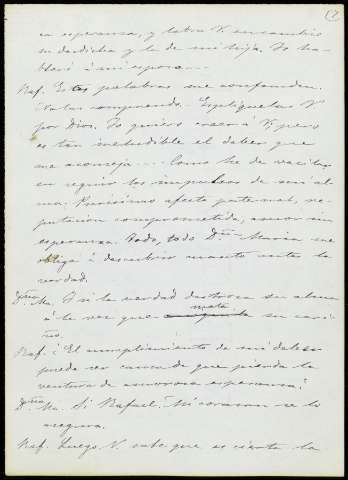 (2
ca esperanza, y labra V. en cambio
su desdicha y la de mi hija. Yo ha-
blaré á mi esposo....
Raf. Estas palabras me confunden.
No las comprendo. Expliquelas V.
por Dios. Yo quiero creer á V, pero
es tan ineludible el deber que
me aconseja.... Como he de vacilar
en seguir los impulsos de mi al-
ma. Purisimo afecto paternal, re-
putacion comprometida, amor sin
esperanza. Todo, todo Dña Maria me
obliga á descubrir cuanto antes la
verdad.
Dña Ma. Y si la verdad destroza su alma
á la vez que mata su cari-
ño.
Raf. ¿El cumplimiento de mi deber
puede ser causa de que pierda la
ventura de amorosa esperanza?
Dña Ma. Si Rafael. Mi corazon se lo
asegura.
Raf. Luego V. sabe que es cierta la